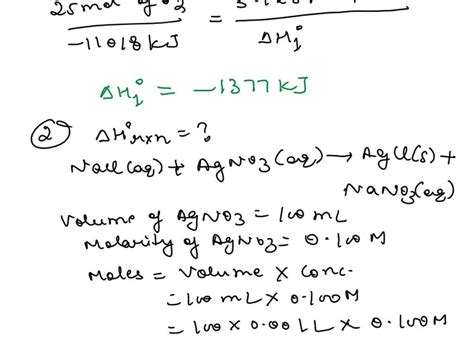 25mol of O2 =
-11018 kJ ΔH°1
ΔH°1 = -1377 kJ
(2) ΔH°rxn = ?
NaCl(aq) + AgNO3(aq) → AgCl(s) +
NaNO3(aq)
Volume of AgNO3 = 100 mL
Molarity of AgNO3 = 0.100M
Moles = Volume × Conc.
= 100 mL × 0.100M
= 100 × 0.001L × 0.100M